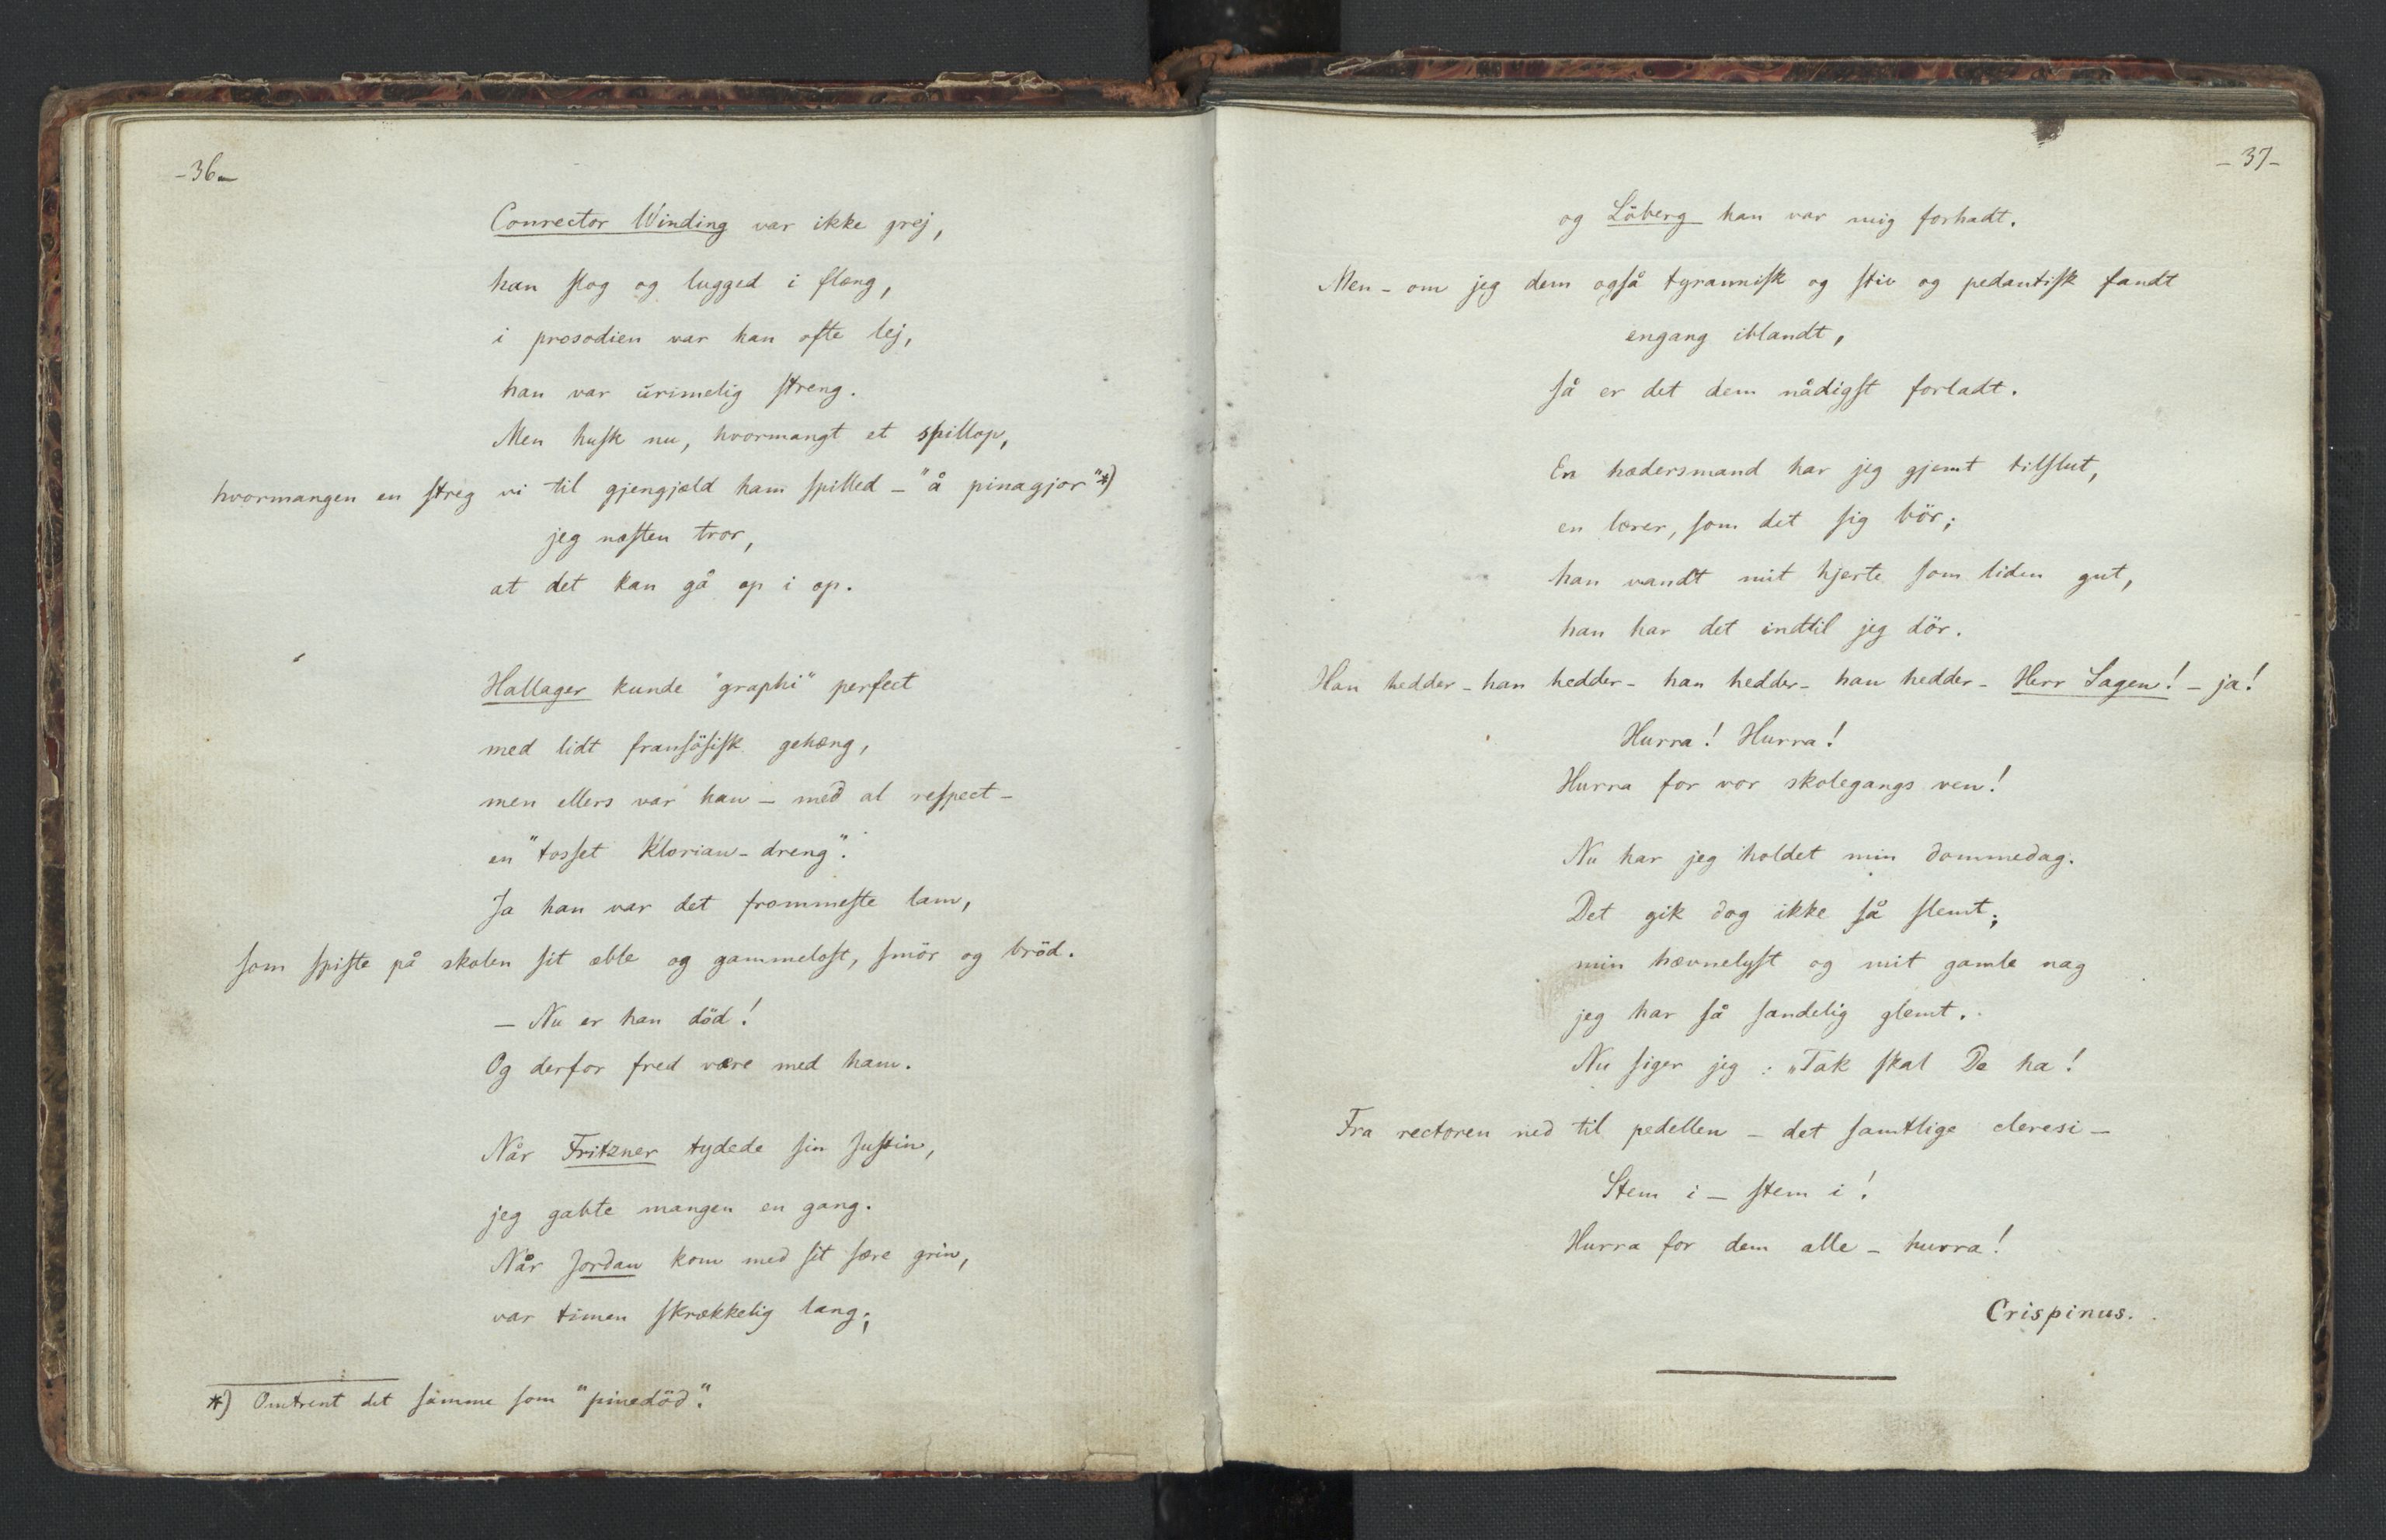 -36-
Conrector Winding var ikke grej,
han slog og lugged i flæng,
i prosodien var han ofte lej,
han var urimelig streng.
Men husk nu, hvormangt et spillop,
hvormangen en streg vi til gjengjæld ham spilled - "å pinagjor"*)
jeg næsten tror,
at det kan gå op i op.
Hallager kunde "graphi" perfect
med lidt fransösisk gehæng,
men ellers var han - med al respect -
en "tosset Klorian-dreng".
Ja han var det frommeste lam,
som spiste på skolen sit æble og gammelost, smör og bröd.
- Nu er han död!
Og derfor fred være med ham.
Når Fritzner tydede sin Justin,
jeg gabte mangen en gang.
Når Jordan kom med sit sære grin,
var timen skrækkelig lang;
*) Omtrent det samme som "pinedöd".
-37-
og Löberg han var mig forhadt.
Men - om jeg dem også tyrannisk og stiv og pedantisk fandt
engang iblandt,
så er det dem nådigst forladt.
En hædersmand har jeg gjemt tilslut,
en lærer, som det sig bör;
han vandt mit hjerte som liden gut,
han har det indtil jeg dör.
Han hedder - han hedder - han hedder - han hedder - Herr Sagen! - ja!
Hurra! Hurra!
Hurra for vor skolegangs ven!
Nu har jeg holdet min dommedag.
Det gik dog ikke så slemt;
min hævnelyst og mit gamle nag
jeg har så sandelig glemt.
Nu siger jeg: „Tak skal De ha!
Fra rectoren ned til pedellen - det samtlige cleresi -
Stem i - stem i!
Hurra for dem alle - hurra!
Crispinus.